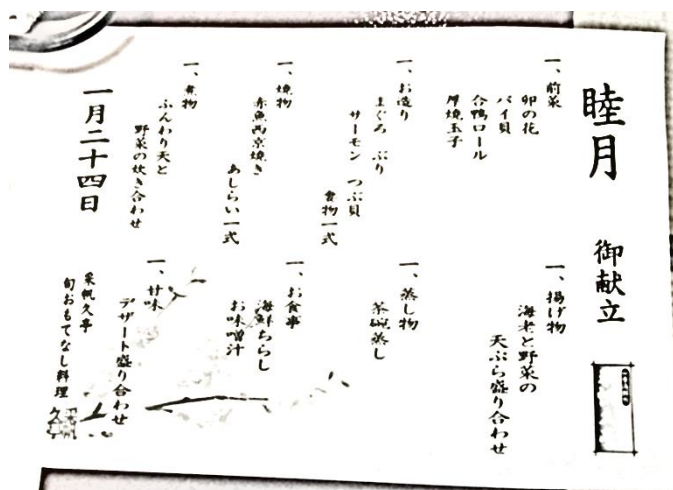 睦月 御献立
一、前菜
卯の花
バイ貝
合鴨ロール
厚焼玉子
一、お造り
まぐろ ぶり
サーモン つぶ貝
食物一式
一、焼物
赤魚西京焼き
あしらい一式
一、煮物
ふんわり天と
野菜の炊き合わせ
一、揚げ物
海老と野菜の
天ぷら盛り合わせ
一、蒸し物
茶碗蒸し
一、お食事
海鮮ちらし
お味噌汁
一、甘味
デザート盛り合わせ
一月二十四日
采帆久亭
旬おもてなし料理